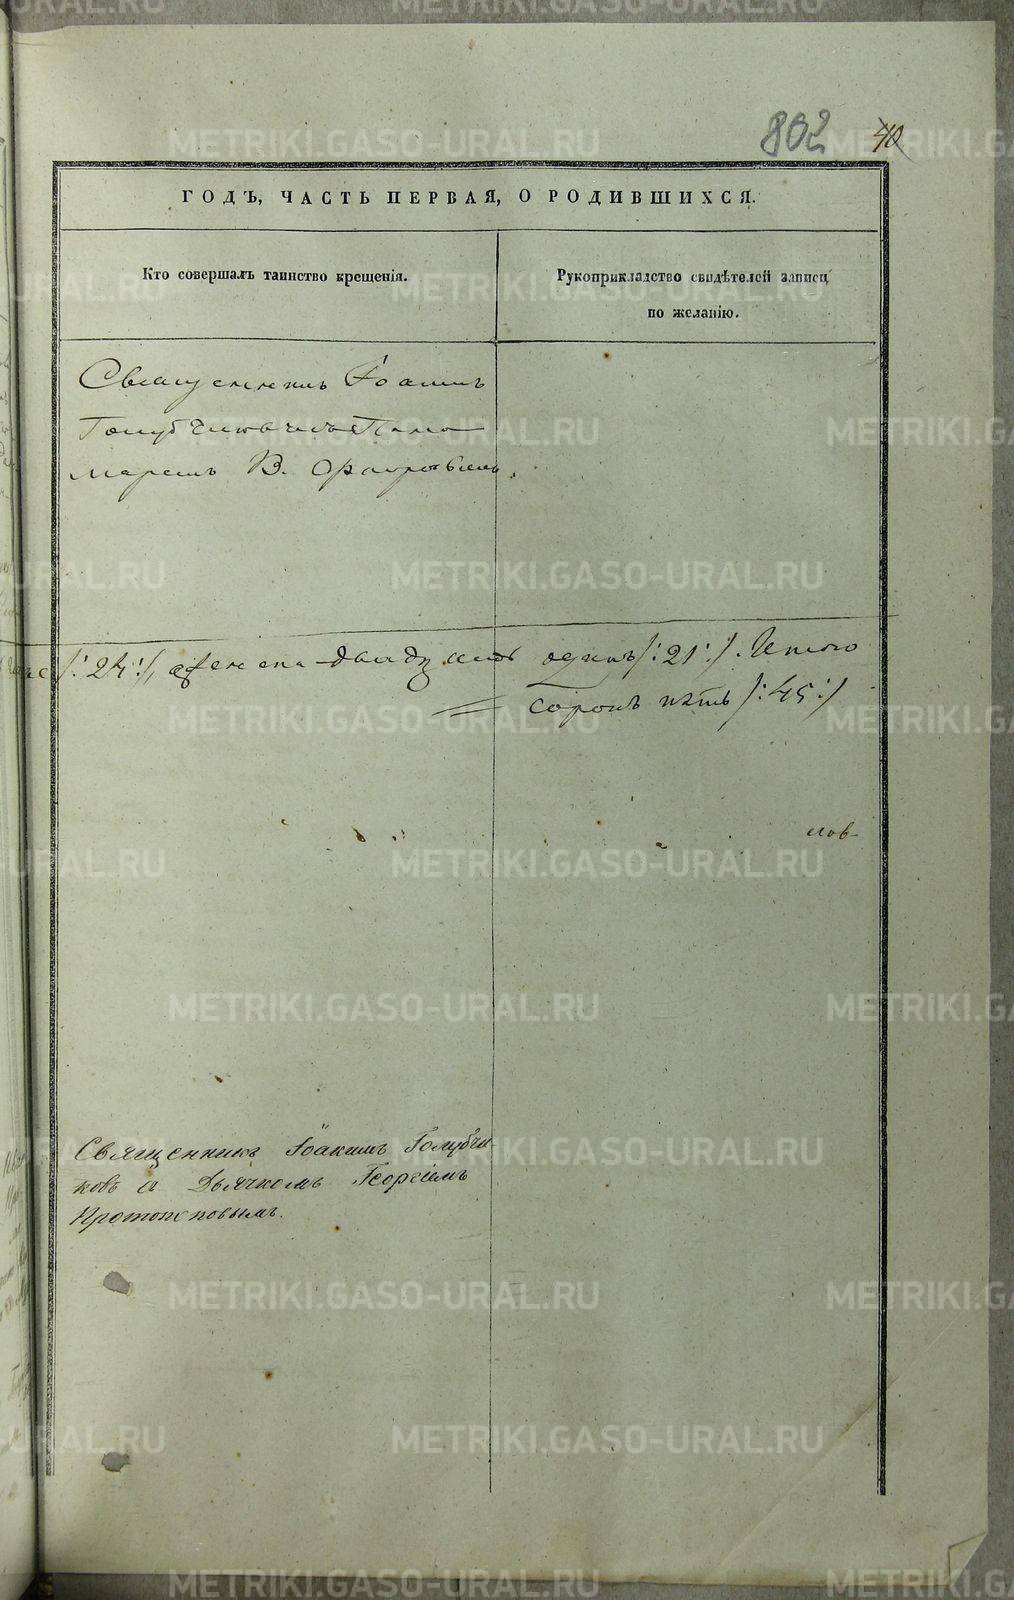 802 40
ГОДЪ, ЧАСТЬ ПЕРВАЯ, О РОДИВШИХСЯ.
Кто совершалъ таинство крещенія.
Рукоприкладство свидѣтелей записи
по желанію.
Священникъ Іоакимъ
Голубчиковъ съ Поно
маремъ В.
/:24:/, женска двадцать одинъ /:21:/. Итого
сорокъ пять /:45:/
Священникъ Іоакимъ Голубчи
ковъ съ Дьячкомъ Георгіемъ
Протопоповымъ.
METRIKI.GASO-URAL.RU